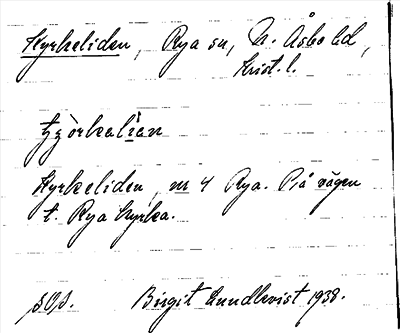 Kyrkeliden, Rya sn, N. Åsbo hd,
Krist. l.
Kyrkeliden, nr 4 Rya. På vägen
t. Rya kyrka.
Birgit Lundkvist 1938.